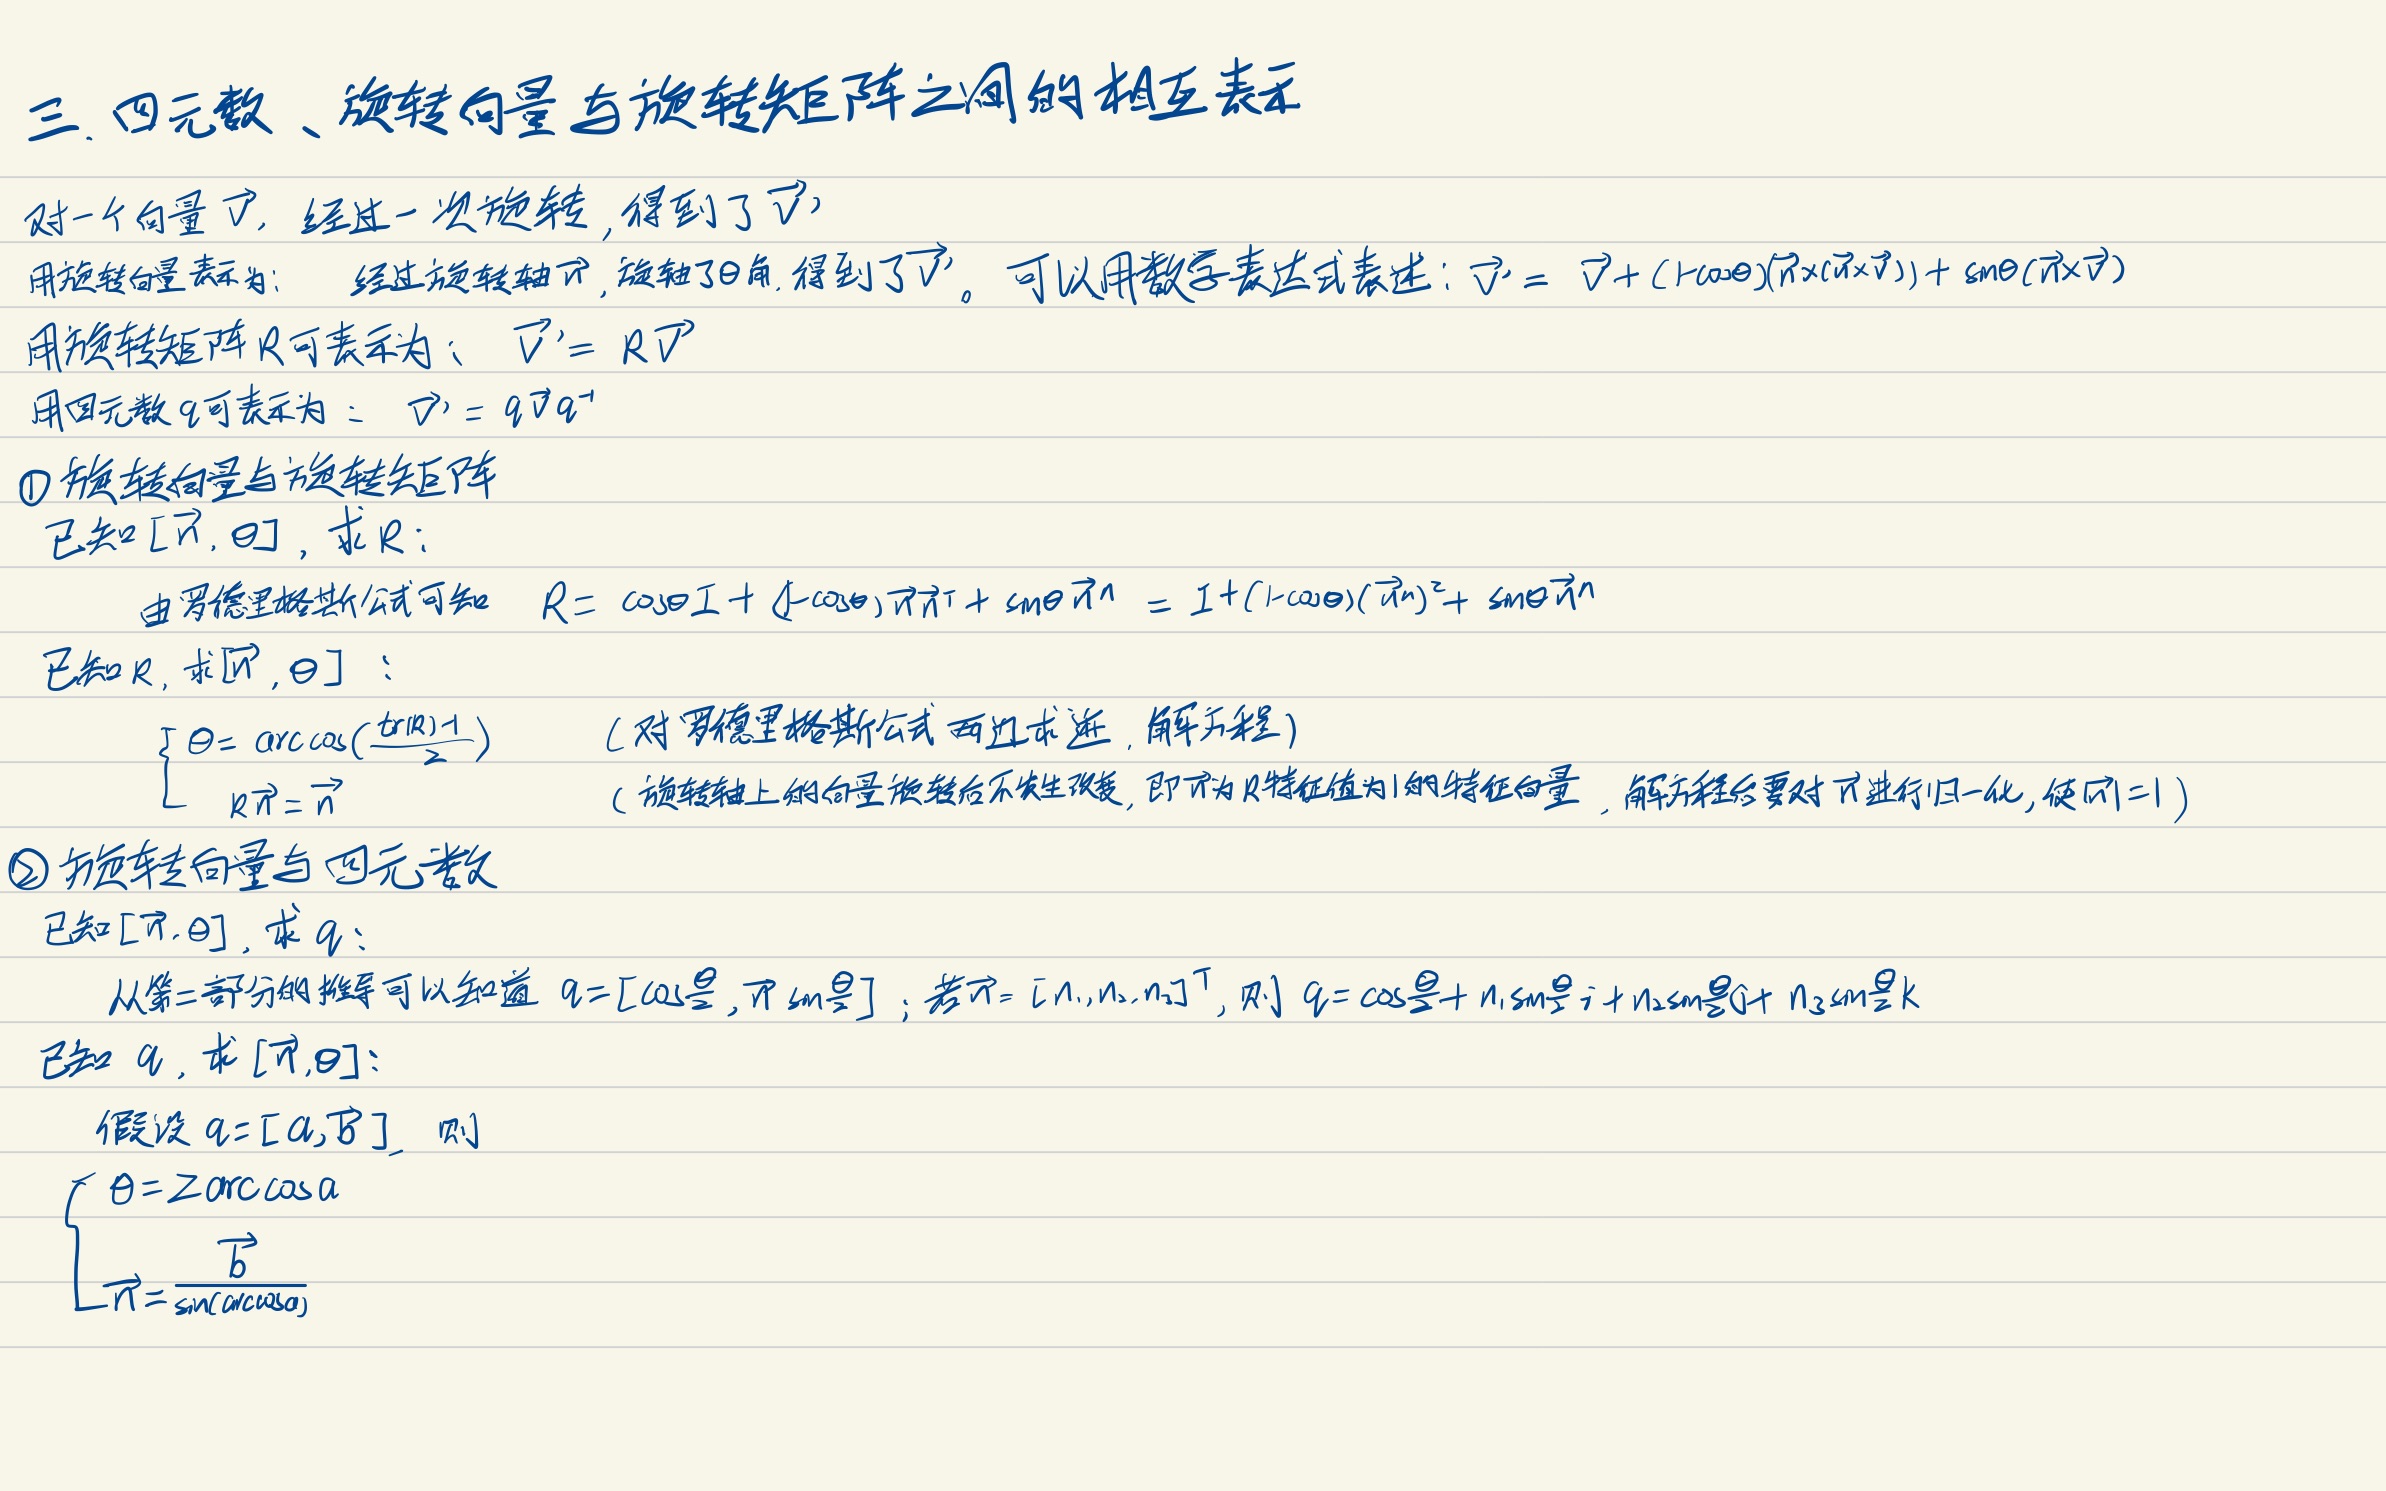 三、四元数、旋转向量与旋转矩阵之间的相互表示
对一个向量 v⃗, 经过一次旋转,得到了 v⃗'
用旋转向量表示为: 经过旋转轴n⃗,旋轴了θ角,得到了v⃗'。可以用数学表达式表述: v⃗' = v⃗+(1-cosθ)(n⃗×(n⃗×v⃗))+ sinθ(n⃗×v⃗)
用旋转矩阵R可表示为: v⃗' = Rv⃗
用四元数q可表示为: v⃗' = qv⃗q⁻¹
① 旋转向量与旋转矩阵
已知[n⃗, θ], 求R:
由罗德里格斯公式可知 R = cosθI + (1-cosθ)n⃗n⃗ᵀ + sinθn⃗^ = I+(1-cosθ)(n⃗^)²+ sinθn⃗^
已知R, 求[n⃗, θ]:
{ θ = arccos((tr(R)-1)/2) (对罗德里格斯公式两边求迹, 解方程)
Rn⃗ = n⃗ (旋转轴上的向量旋转后不发生改变, 即n⃗为R特征值为1的特征向量, 解方程后要对n⃗进行归一化, 使|n⃗|=1)
② 旋转向量与四元数
已知[n⃗, θ], 求q:
从第二部分的推导可以知道 q=[cos θ/2, n⃗ sin θ/2]; 若n⃗= [n₁,n₂,n₃]ᵀ, 则 q= cos θ/2 + n₁sin θ/2 i + n₂sin θ/2 j + n₃sin θ/2 k
已知 q, 求[n⃗,θ]:
假设 q=[a,b⃗], 则
{ θ=2arccosa
n⃗ = b⃗/sin(arccosa)